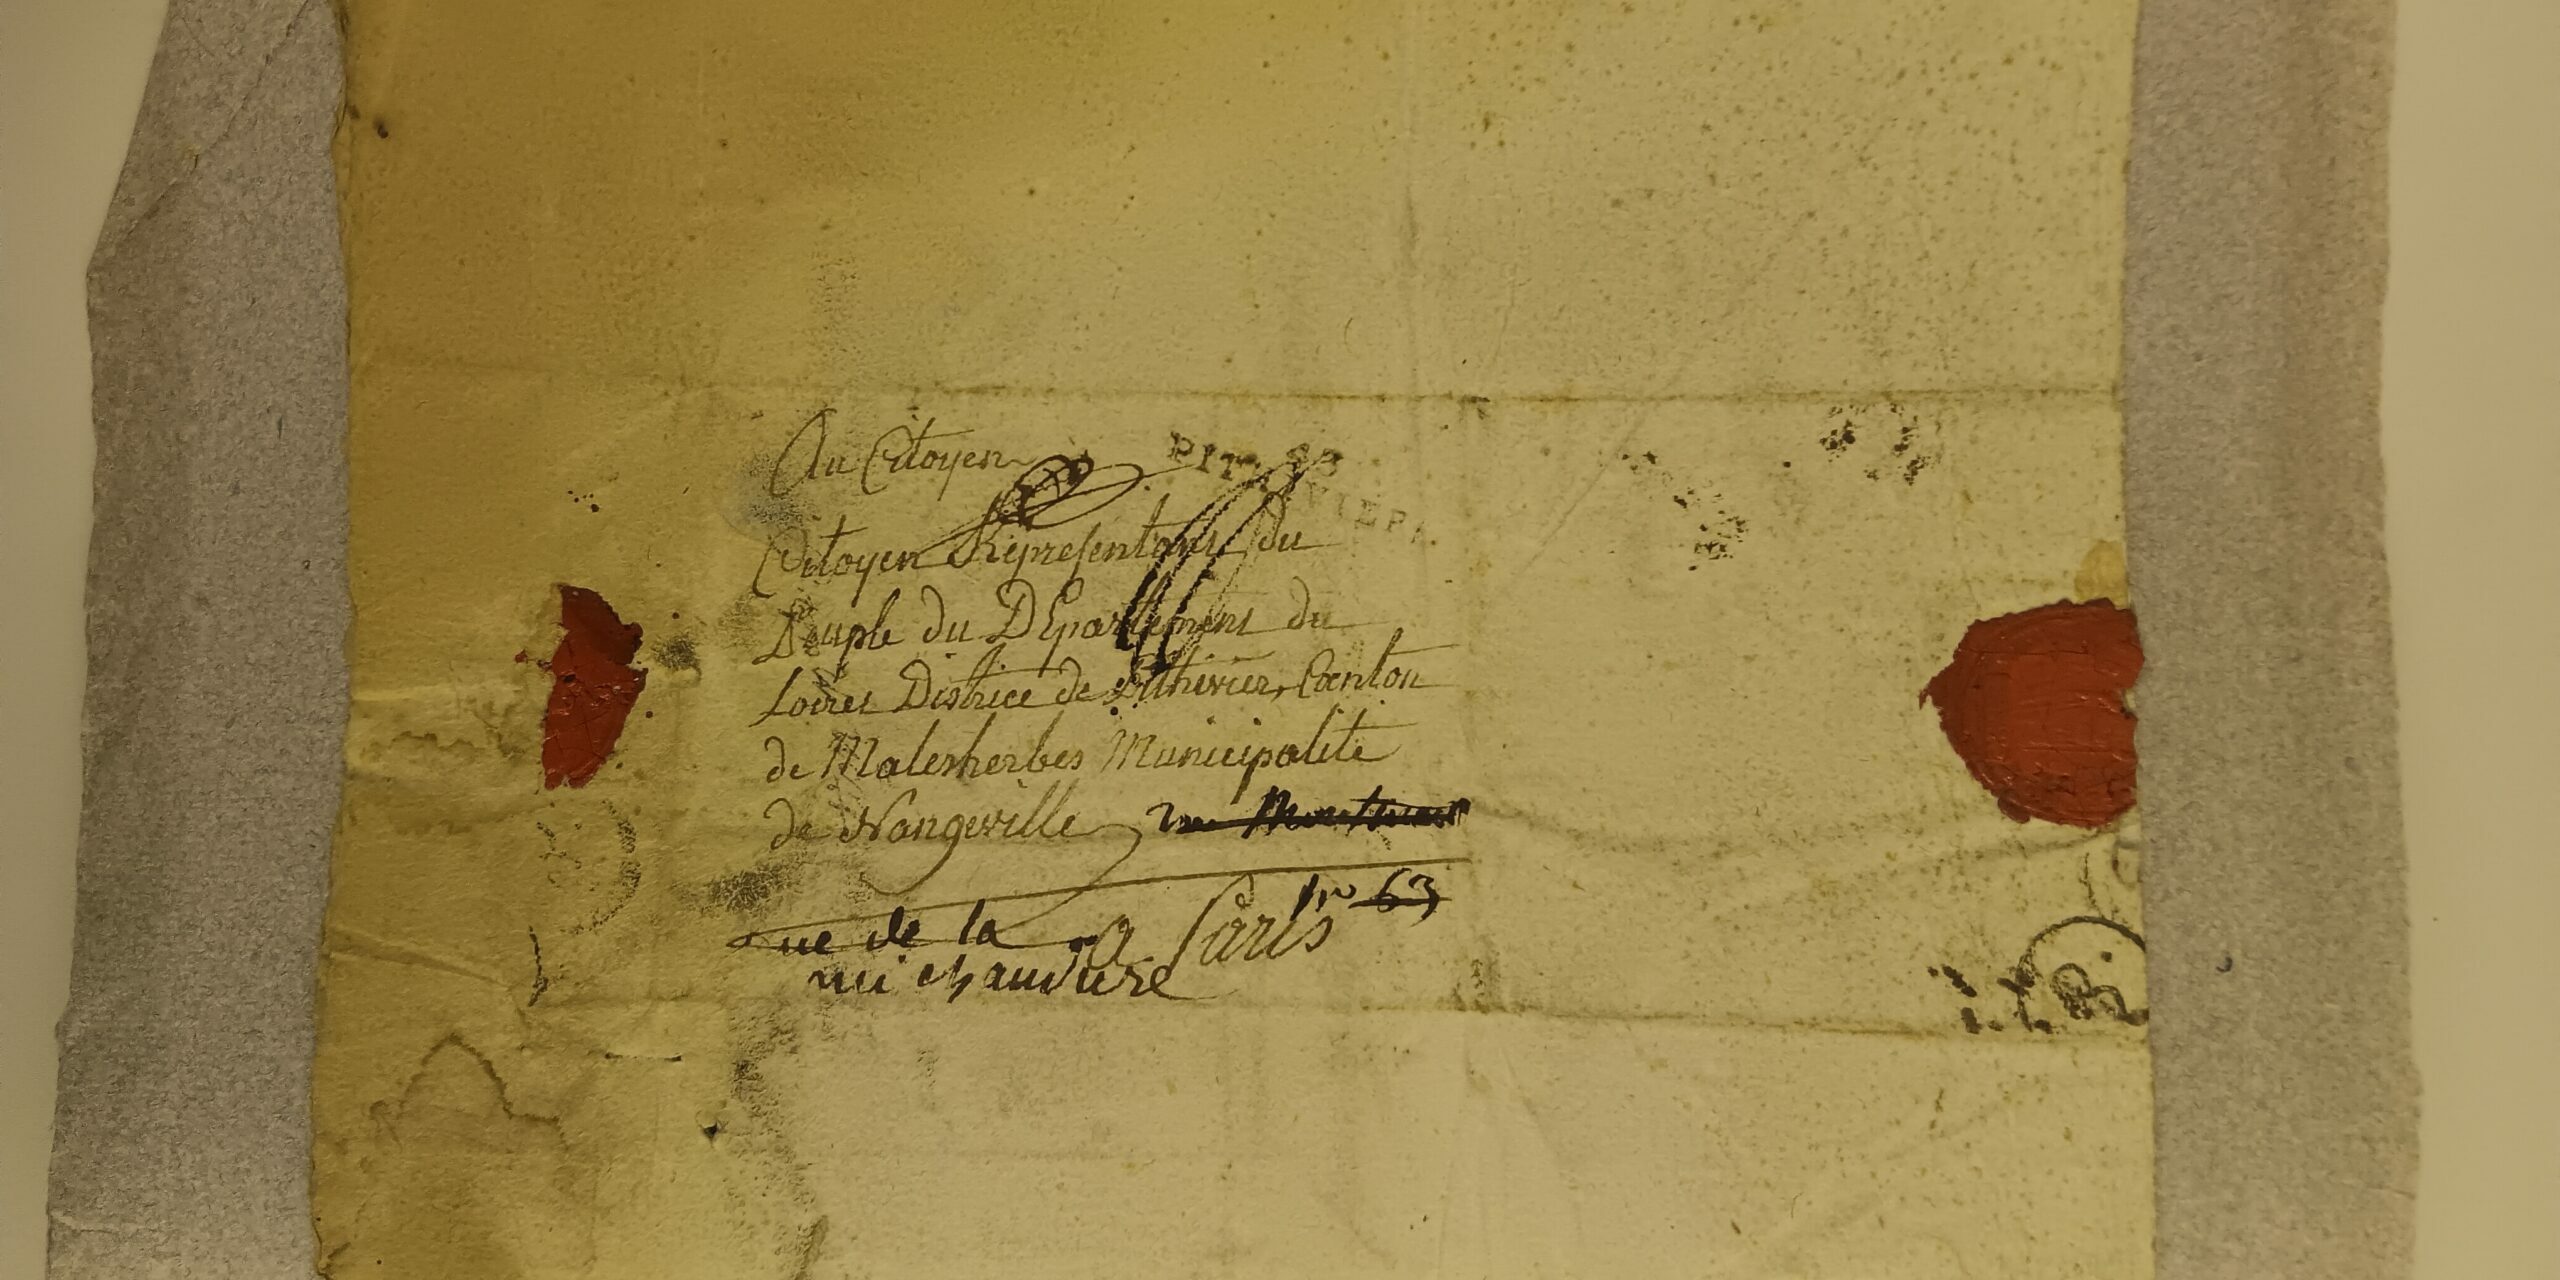 Au Citoyen
PIT 43
VIERS
Citoyen Representant du
Peuple du Département du
Loiret District de Pithivier, Canton
de Malesherbes Municipalité
de Nangeville rue
n° 63
a Paris
rue de la
michaudiere